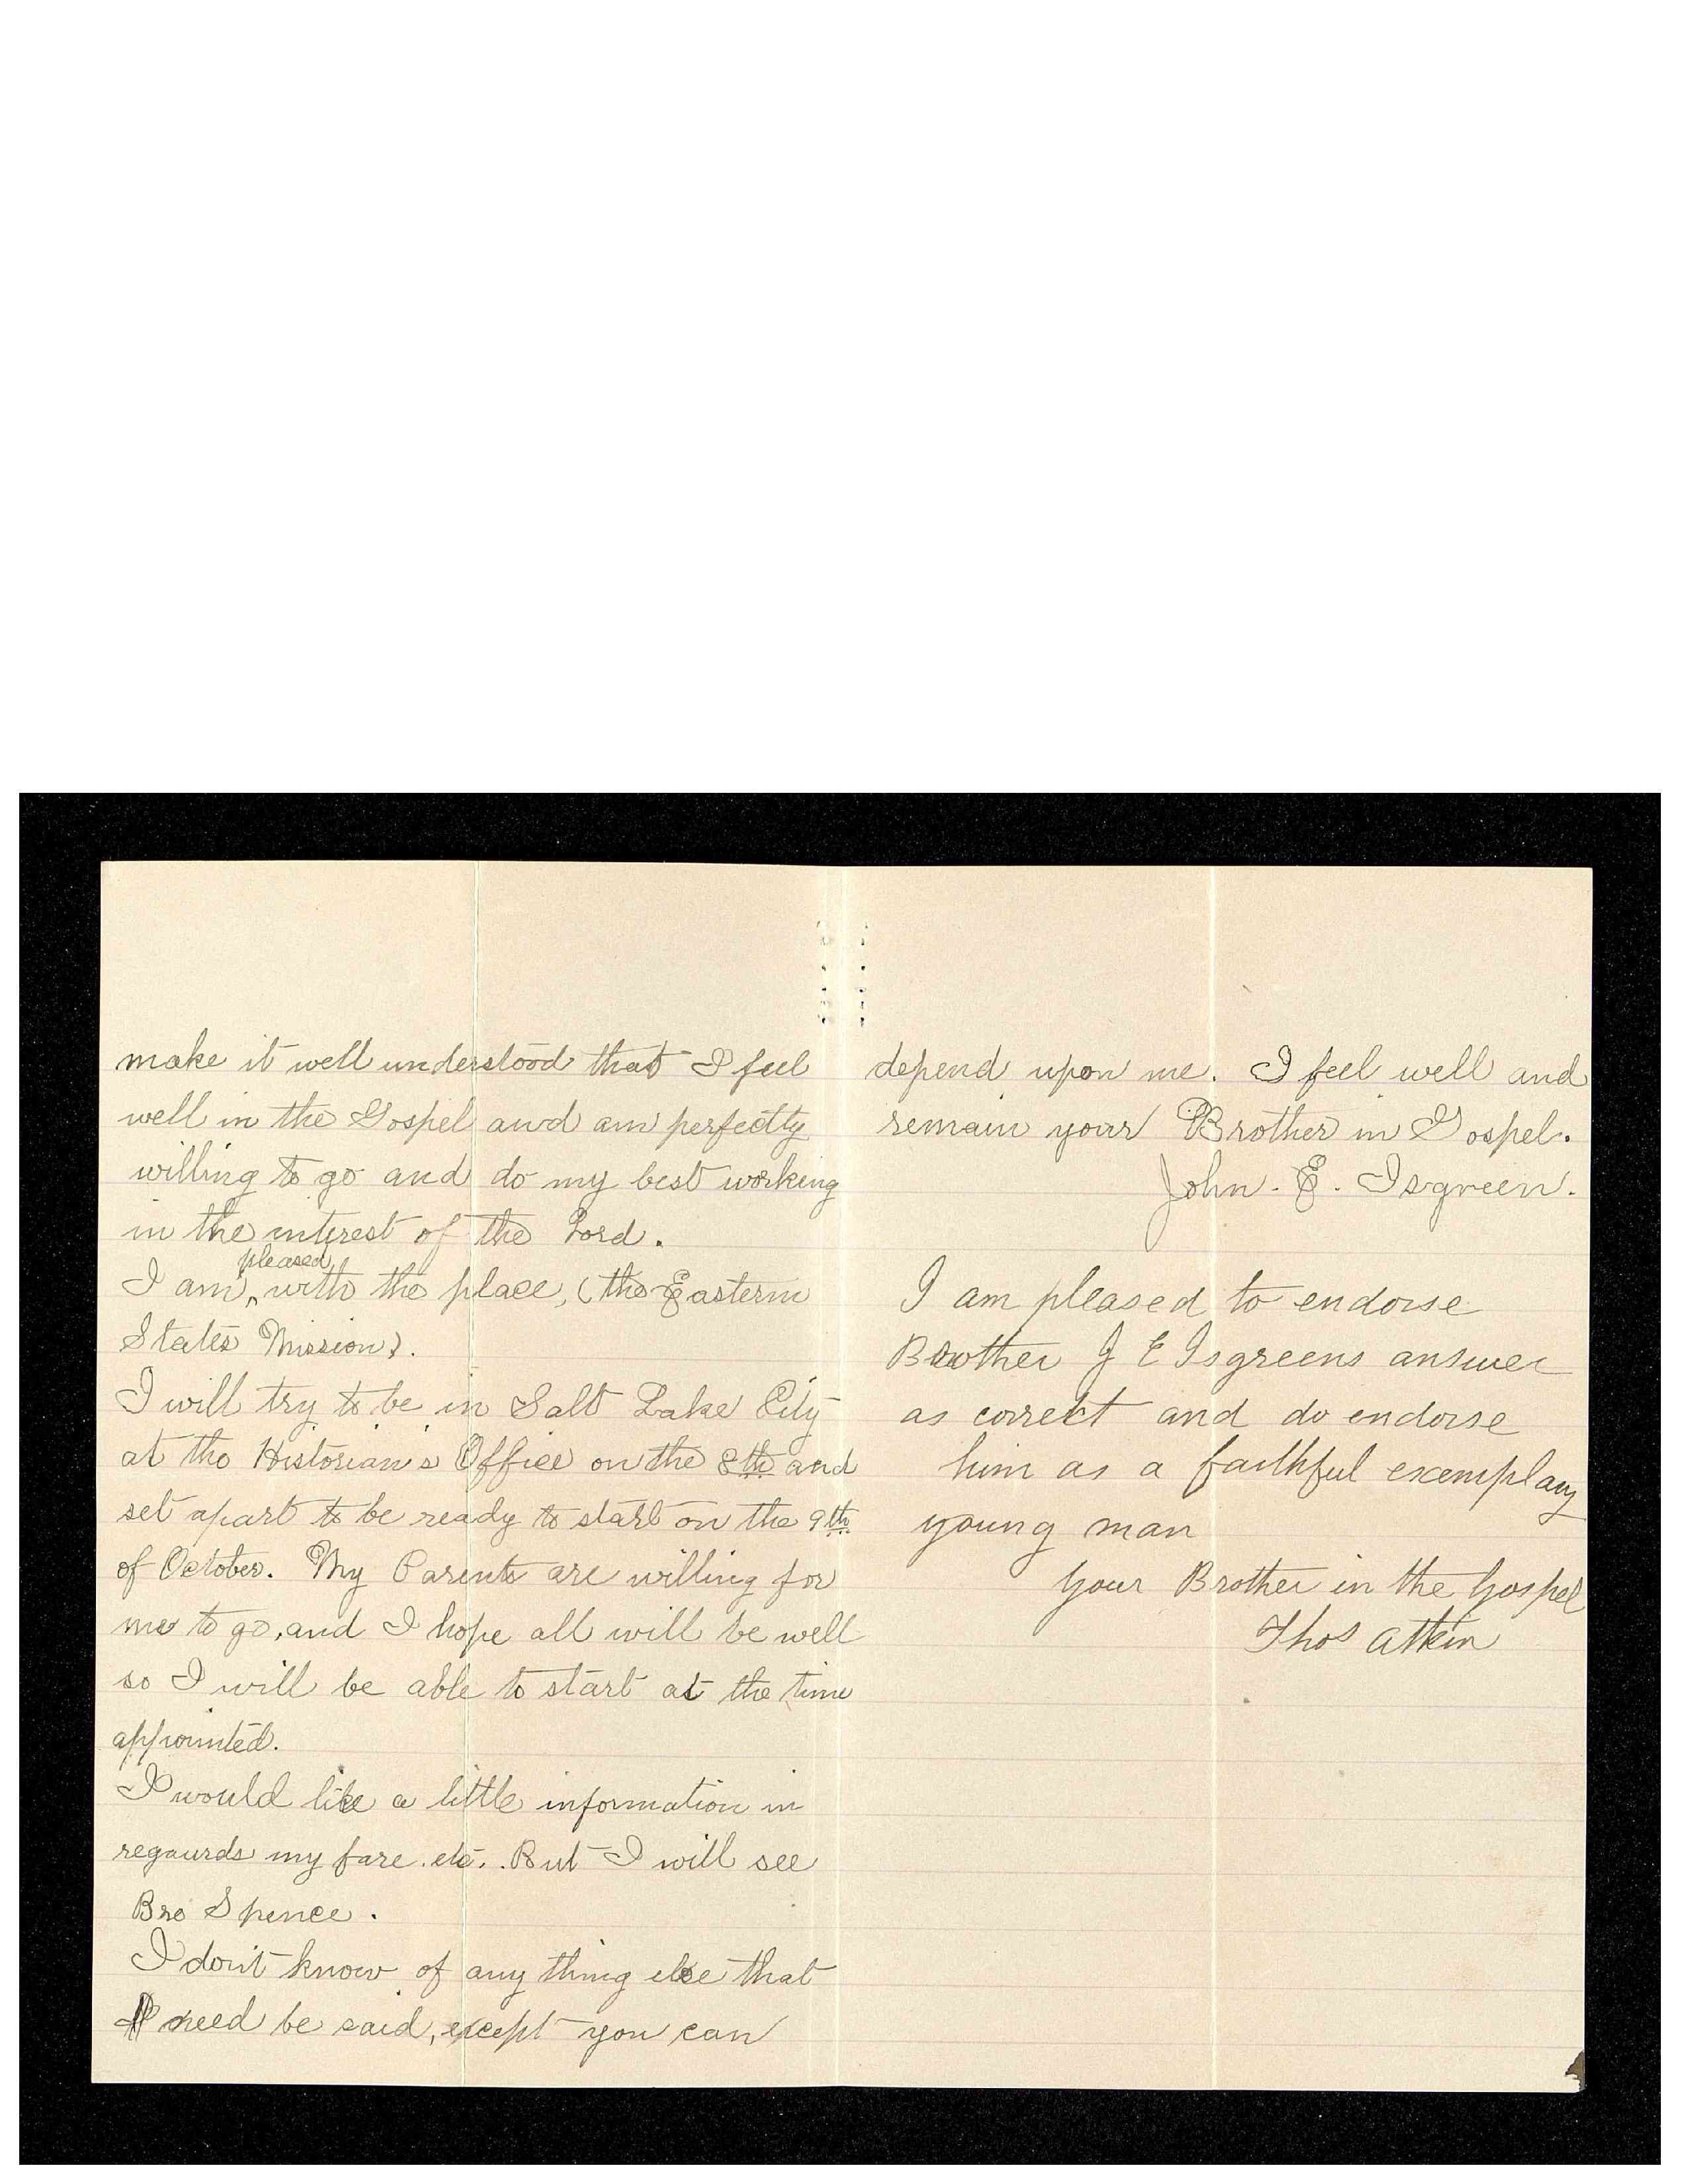 make it well understood that I feel
well in the Gospel and am perfectly
willing to go and do my best working
in the interest of the Lord.
pleased
I am, with the place, (the Eastern
States Mission).
I will try to be in Salt Lake City
at the Historian's Office on the 8th and
set apart to be ready to start on the 9th
of October. My Parents are willing for
me to go, and I hope all will be well
so I will be able to start at the time
appointed.
I would like a little information in
regaurds my fare. etc. But I will see
Bro Spence.
I don't know of any thing else that
need be said, except you can
depend upon me. I feel well and
remain your Brother in Gospel.
John. E. Isgreen.
I am pleased to endorse
Brother J E Isgreens answer
as correct and do endorse
him as a faithful exemplary
young man
Your Brother in the Gospel
Thos Atkin